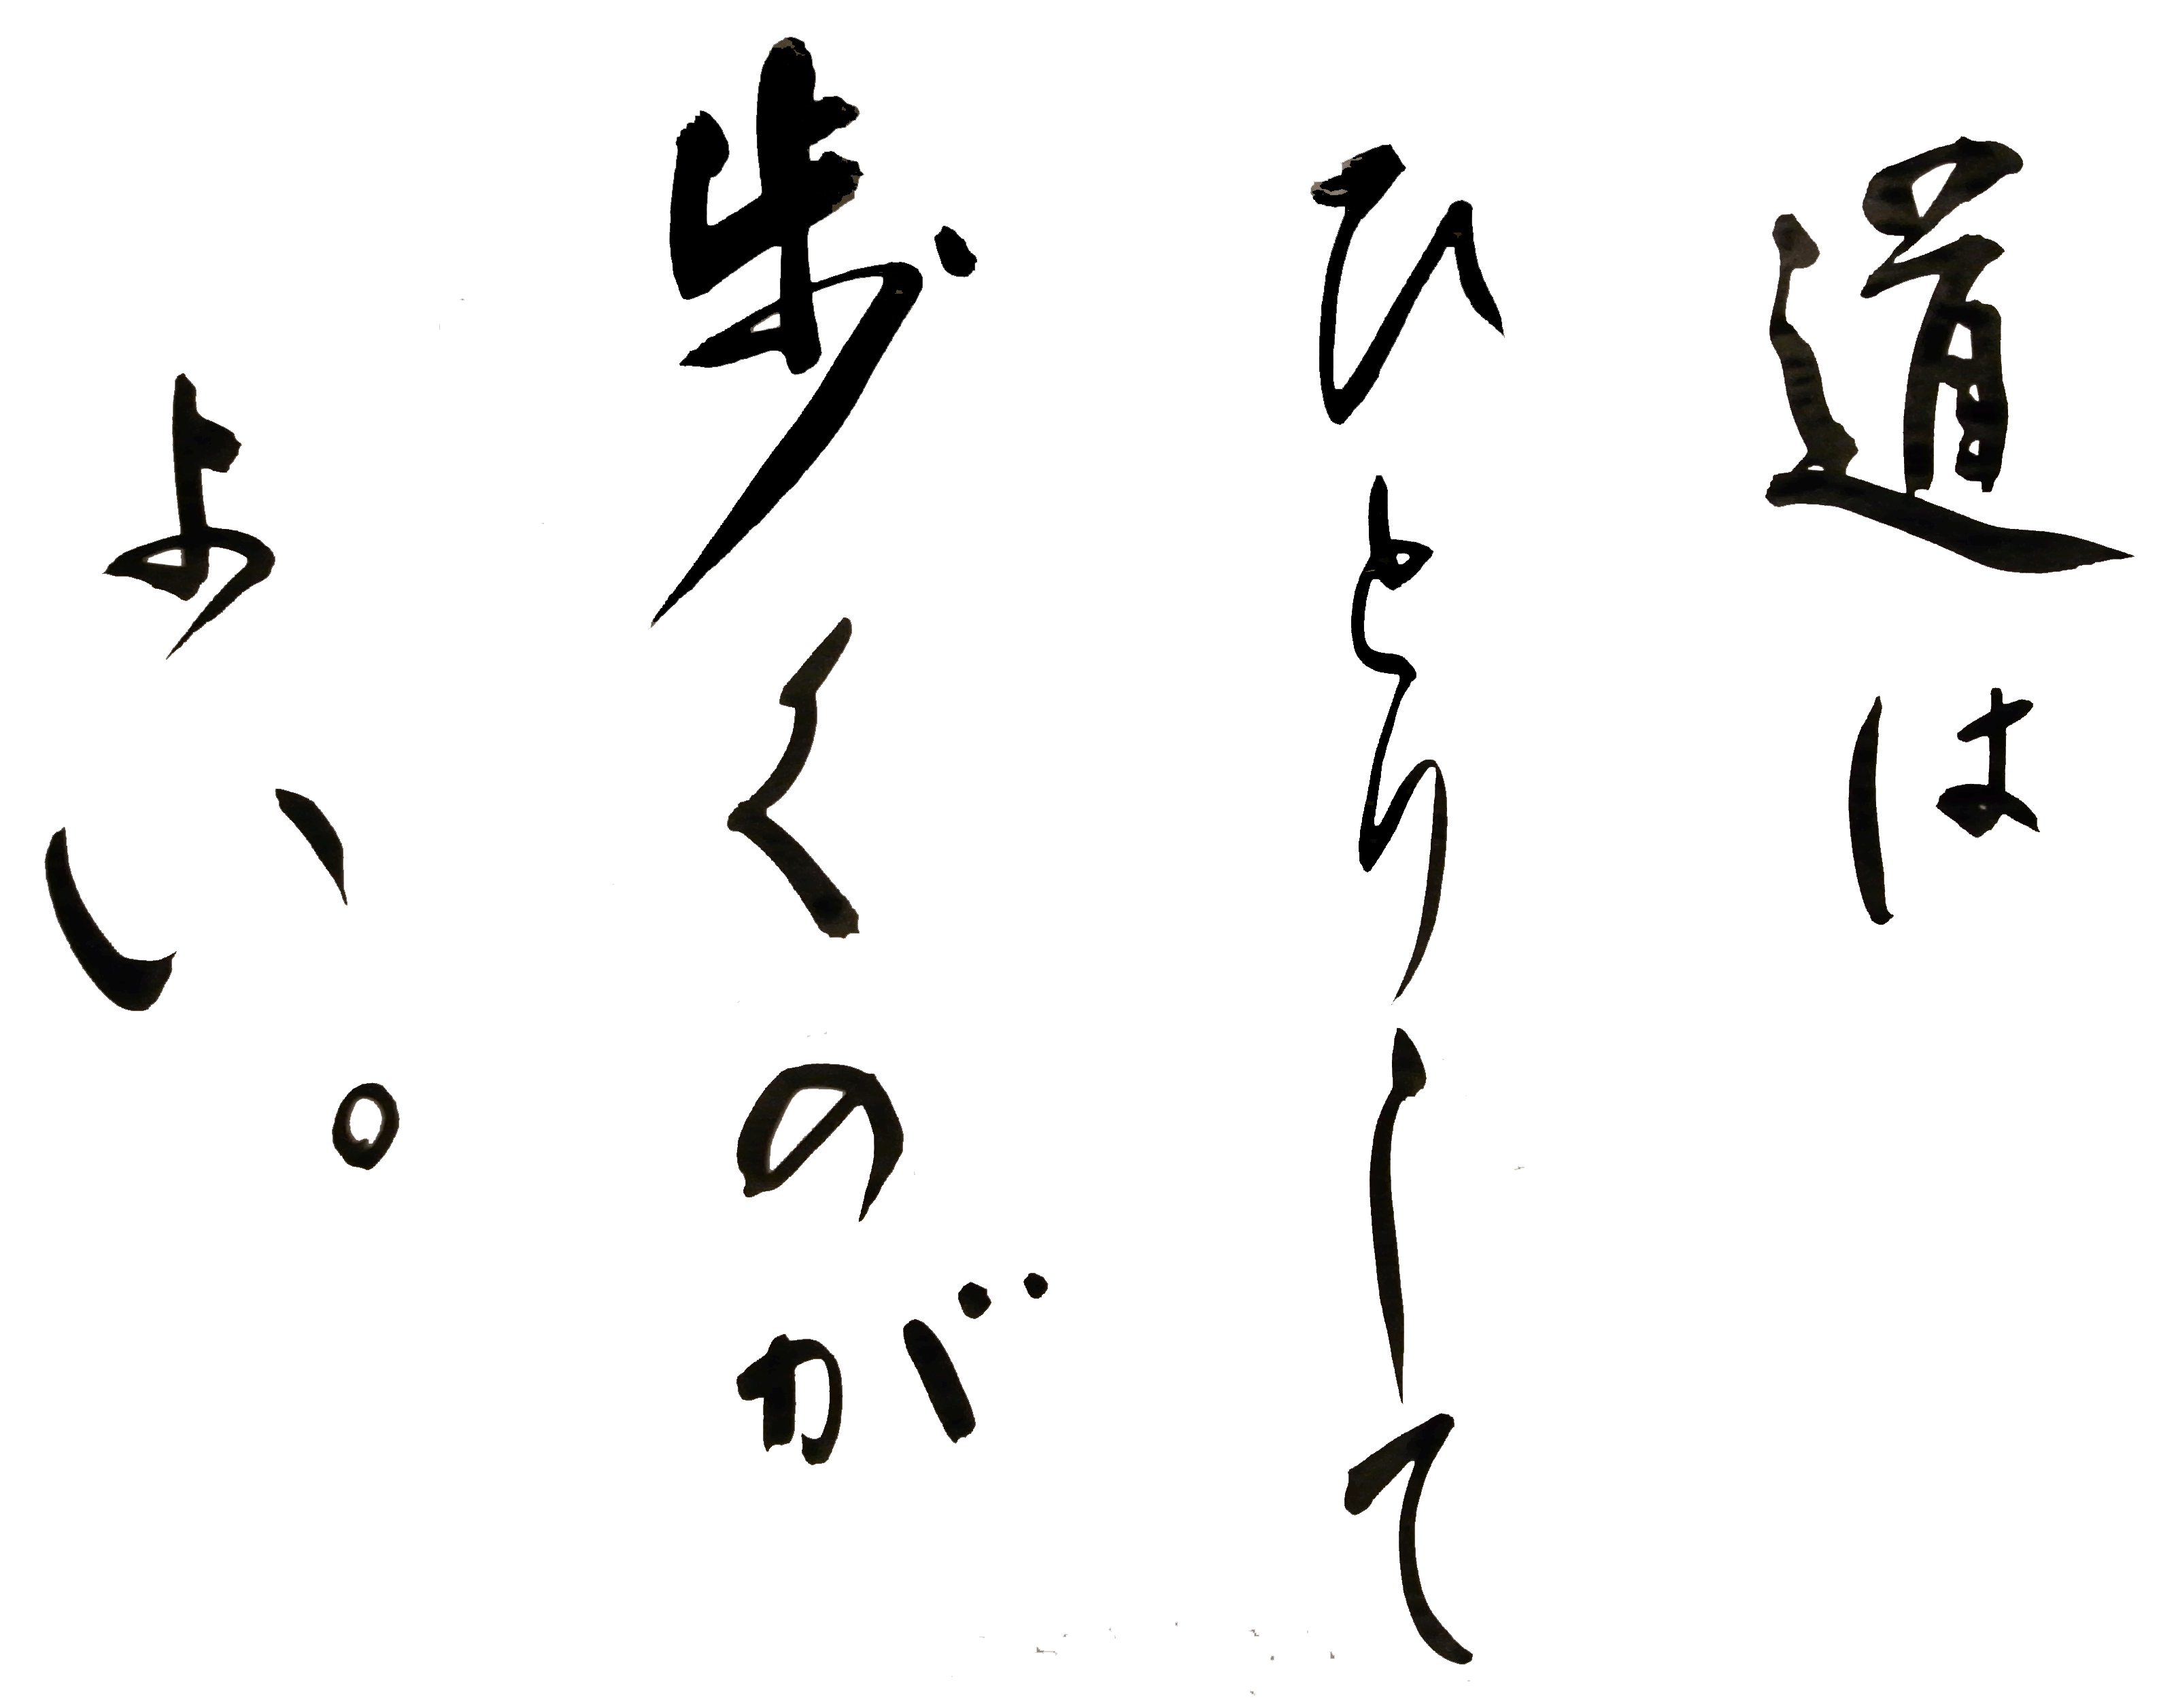 道は
ひとりして
歩くのが
よい。